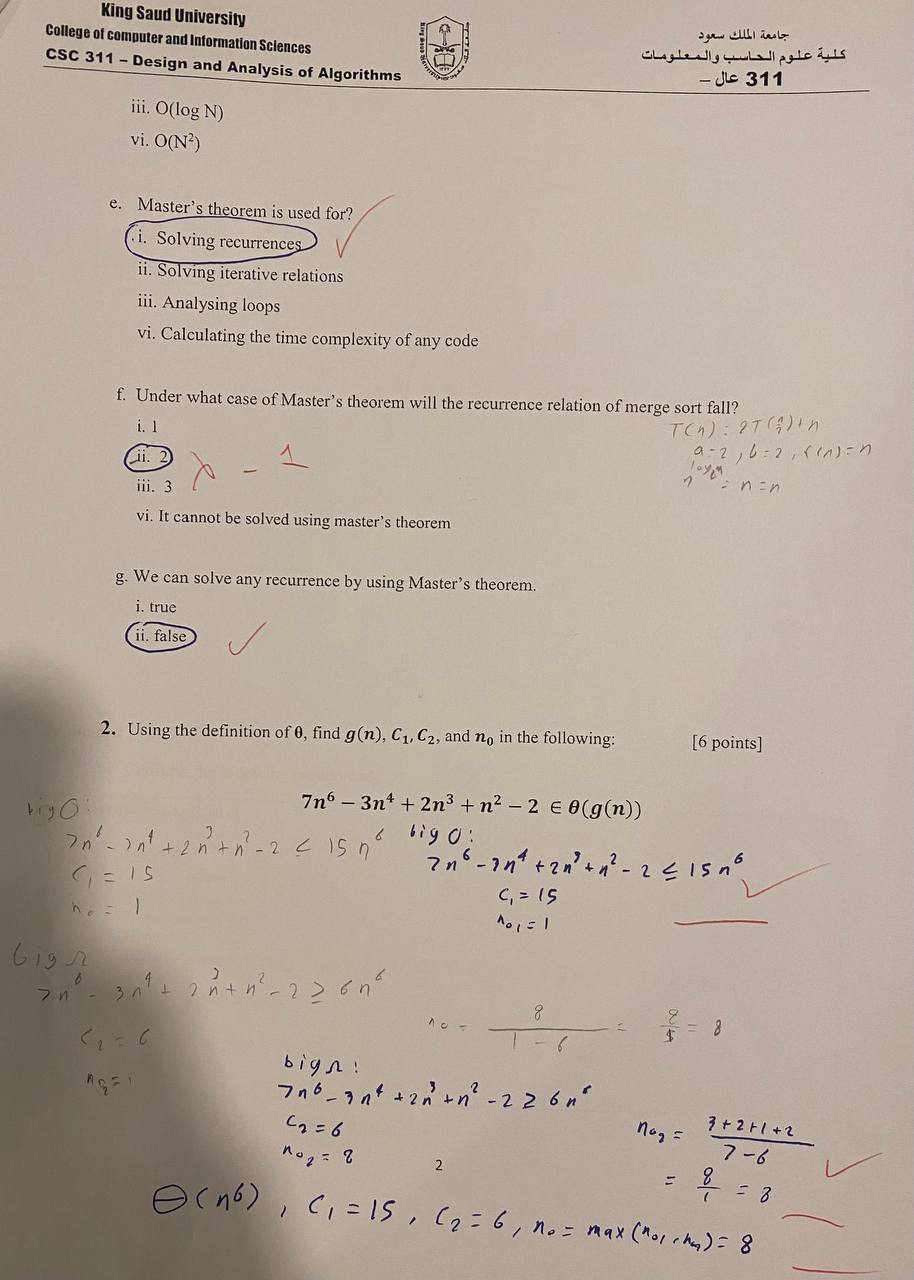 King Saud University
College of computer and Information Sciences
CSC 311 – Design and Analysis of Algorithms
جامعة الملك سعود
كلية علوم الحاسب والمعلومات
311 عال –
iii. O(log N)
vi. O(N²)
e. Master's theorem is used for?
i. Solving recurrences
ii. Solving iterative relations
iii. Analysing loops
vi. Calculating the time complexity of any code
f. Under what case of Master's theorem will the recurrence relation of merge sort fall?
i. 1
ii. 2
iii. 3
vi. It cannot be solved using master's theorem
- 1
T(n) : 2T(n/2)+n
a=2, b=2, f(n)=n
= n = n
g. We can solve any recurrence by using Master's theorem.
i. true
ii. false
2. Using the definition of θ, find g(n), C₁, C₂, and n₀ in the following: [6 points]
7n⁶ – 3n⁴ + 2n³ + n² – 2 ∈ θ(g(n))
big O:
7n⁶ - 3n⁴ + 2n³ + n² - 2 ≤ 15n⁶
C₁ = 15
n₀ = 1
big O:
7n⁶ - 3n⁴ + 2n³ + n² - 2 ≤ 15n⁶
C₁ = 15
n₀₁ = 1
big Ω
7n⁶ - 3n⁴ + 2n³ + n² - 2 ≥ 6n⁶
C₂ = 6
n₀₂ = 1
n₀ = 8/1-6 = 8/1 = 8
big Ω:
7n⁶ - 3n⁴ + 2n³ + n² - 2 ≥ 6n⁶
C₂ = 6
n₀₂ = 8
n₀₂ = 3+2+1+2/7-6
= 8/1 = 8
2
Θ(n⁶), C₁ = 15, C₂ = 6, n₀ = max(n₀₁, n₀₂) = 8